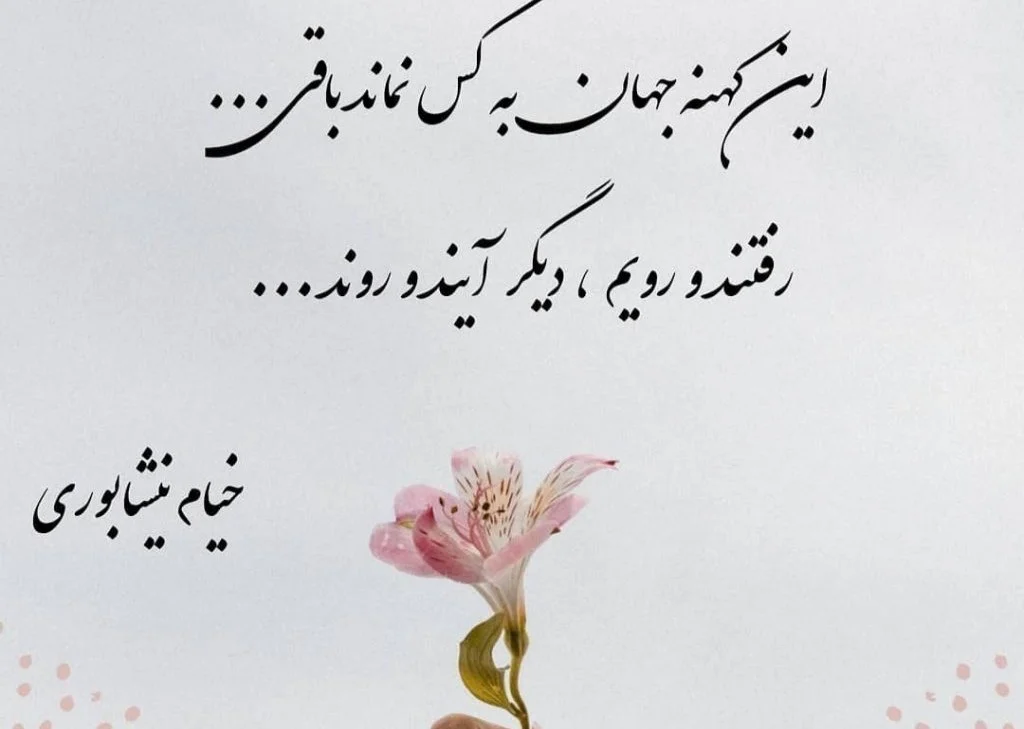 این کهنه جهان به کس نماند باقی...
رفتند و رویم ، دیگر آیند و روند...
خیام نیشابوری